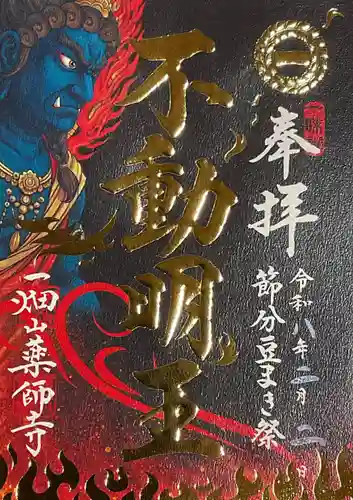 一
奉拝
令和八年二月二日
節分豆まき祭
不動明王
一畑山薬師寺